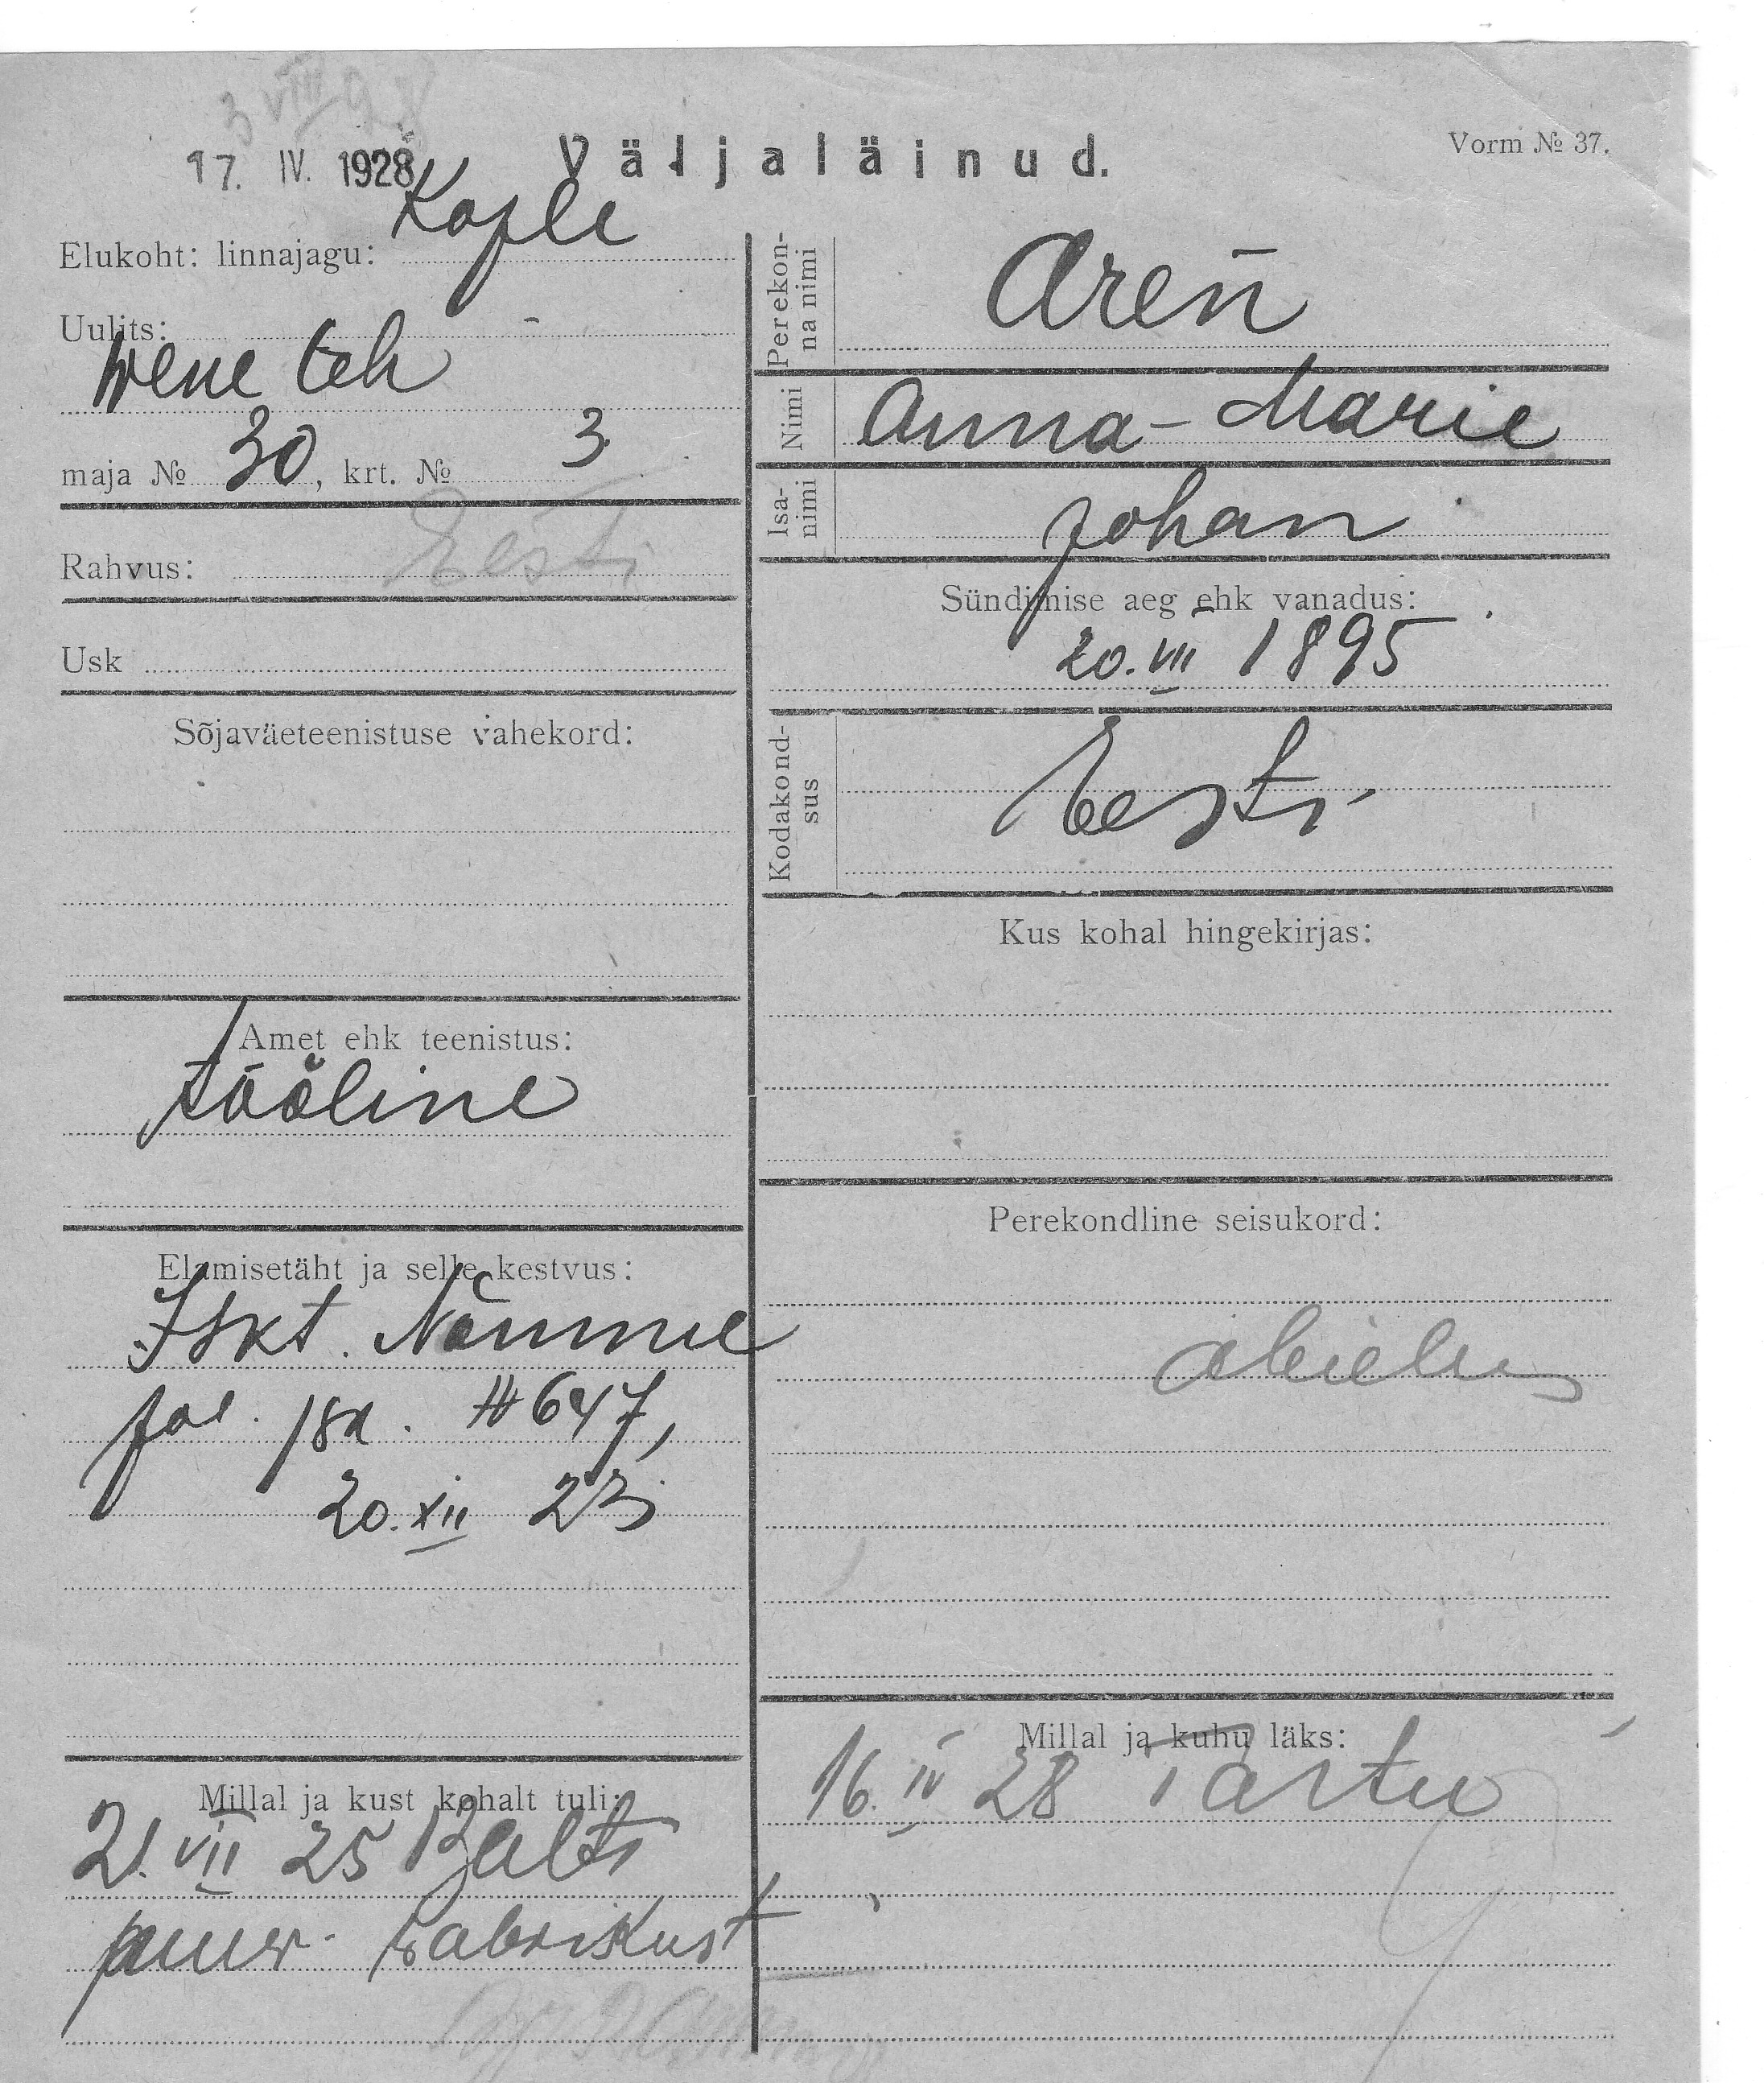 3 VIII 28
17. IV. 1928
Väljaläinud.
Vorm № 37.
Elukoht: linnajagu: Kople
Uulits:
Wene teh
maja № 30, krt. № 3
Rahvus: Eesti
Usk
Sõjaväeteenistuse vahekord:
Amet ehk teenistus:
tööline
Elamisetäht ja selle kestvus:
Iskt. Nõmme
jao. 18a. № 647,
20. XII 23
Millal ja kust kohalt tuli:
21. VII 25 Balti
puuw. wabrikust
Perekonna nimi
Aren
Nimi
Anna-Marie
Isanimi
Johan
Sündimise aeg ehk vanadus:
20. VII 1895
Kodakondsus
Eesti
Kus kohal hingekirjas:
Perekondline seisukord:
abielu
Millal ja kuhu läks:
16. IV 28 Tartu